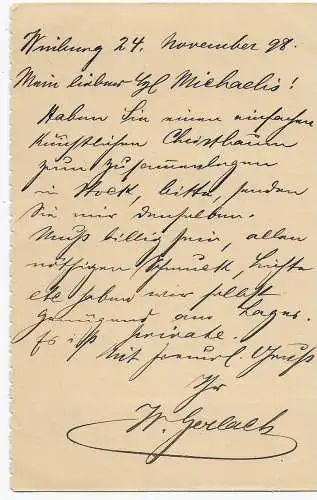 24. November 98.
Mein lieber Michaelis!
Haben Sie einen einfachen
künstlichen Christbaum
zum zusammenlegen
in Stock, bitte, senden
Sie mir denselben.
Muß billig sein, allen
nöthigen Schmuck, Lichte
etc haben wir selbst
genügend am Lager.
Es ist private.
Mit freundl. Gruß
Ihr
W. Gerlach